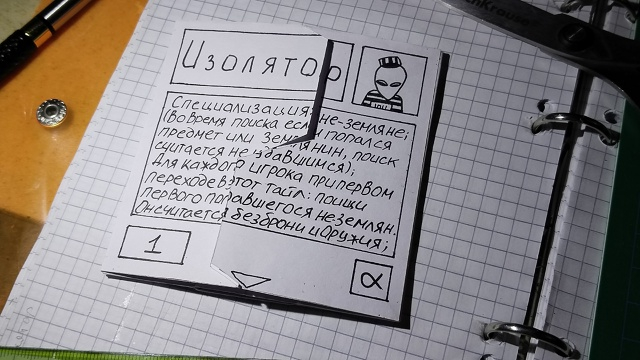 Изолято
р
1015
Специализация:
не-земляне;
(Во время поиска если попался
предмет или землянин, поиск
считается не удавшимся);
Для каждого игрока при первом
переходе в этот тайл: поищи
первого попавшегося неземлян.
Он считается без брони и оружия;
1
α